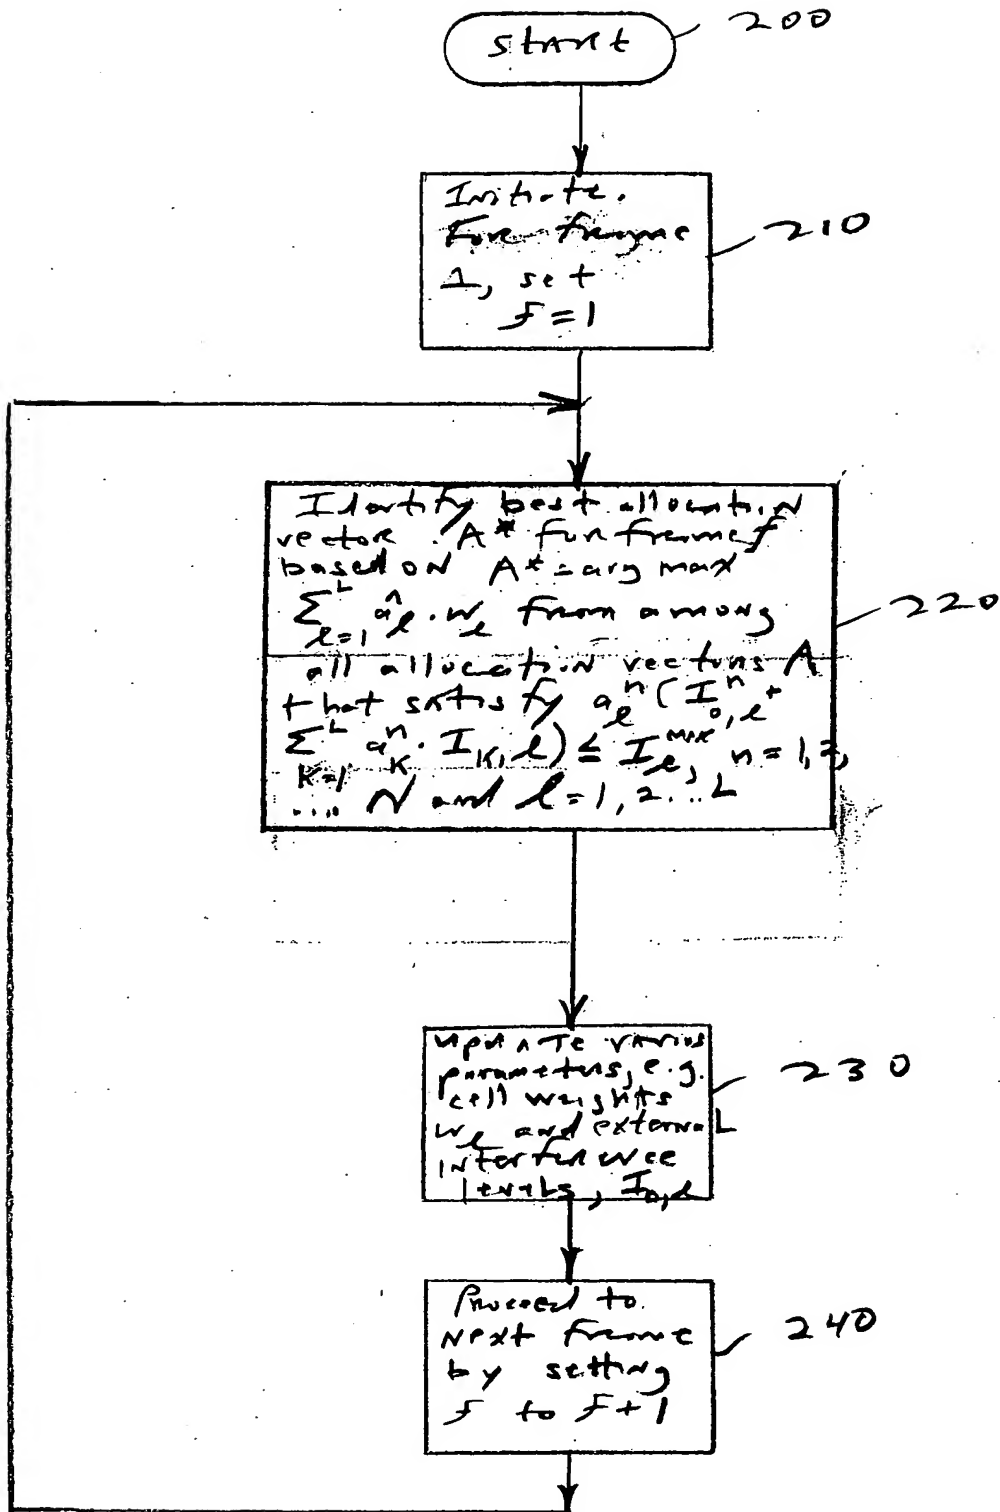 Start
200
Initiate.
For frame
1, set
f = 1
210
Identify best allocation
vector A* for frame f
based on A* = arg max
∑_{l=1}^{L} a_l^n · w_l from among
all allocation vectors A
that satisfy a_l^n ( I_{0,l}^n +
∑_{K=1}^{L} a_K^n · I_{K,l} ) ≤ I_l^{max}, n = 1, 2,
.... N and l = 1, 2 ... L
220
update various
parameters, e.g.
cell weights
w_l and external
interference
levels, I_{0,l}
230
Proceed to
next frame
by setting
f to f + 1
240